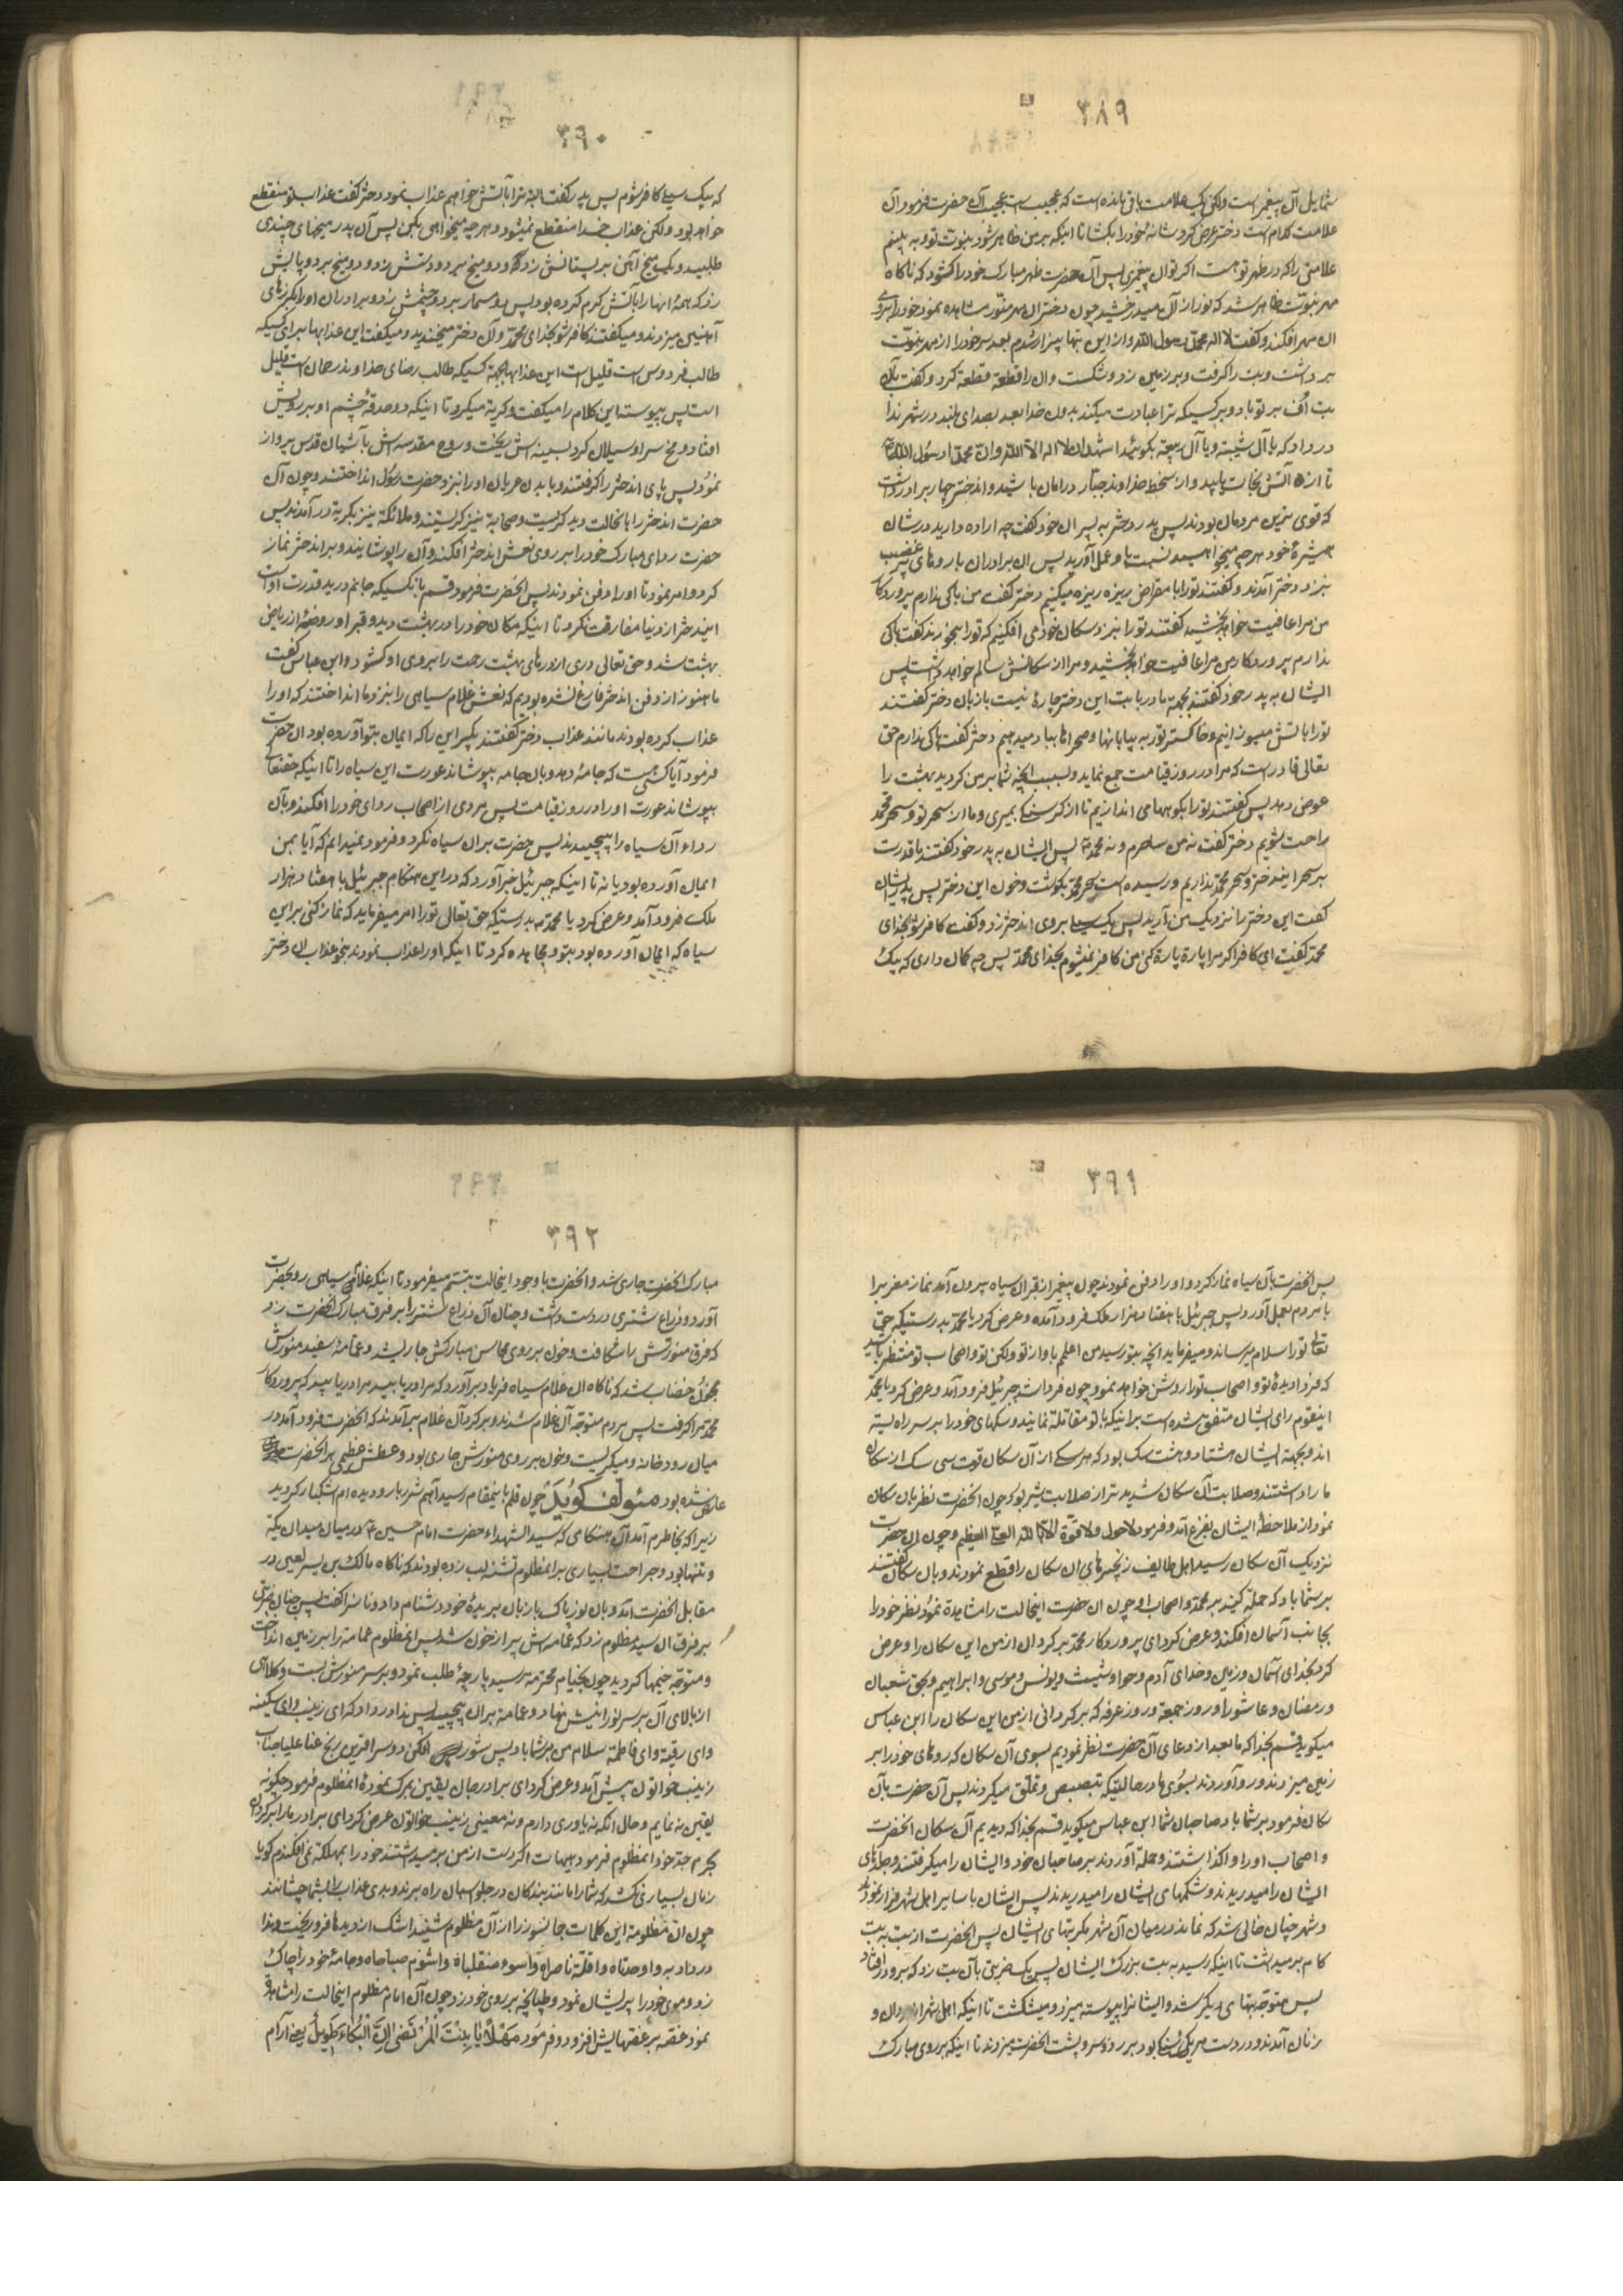 ۳۸۹
شمایل آن پیغمبر است ولکن یک علامت باقی مانده است که عجیب است عجیب آن حضرت فرمود آن
علامت کدام است دختر عرض کرد شانهٔ خود را بکشا تا اینکه بر من ظاهر شود نبوت تو و به بینم
علامتی را که در ظهر تو هست اگر تو آن پیغمبری پس آن حضرت ظهر مبارک خود را کشود که ناکاه
مهر نبوت ظاهر شد که نور از آن میدرخشید چون دختر آن مهر منور مشاهده نمود خود را بروی
آن مهر افکند و گفت لا اله محمد رسول الله و از این بتها بیزار شدم بعد سر خود را از مهر نبوت
برداشت و بت را گرفت و بر زمین زد و شکست و آن را قطعة قطعة کرد و گفت بآن
بت اُف بر تو باد و بر کسیکه ترا عبادت میکند بدون خدا بعد بصدای بلند در شهر ندا
در داد که یا آل شیبته و یا آل ربیعه بکوئید اشهد ان لا اله الا الله و ان محمدا رسول الله
تا از آتش نجات یابید و از سخط خداوند جبار در امان باشید و اندختر چهار برادر داشت
که قوی ترین مردمان بودند پس پدر دختر به پسران خود گفت چه اراده دارید در شان
همشیرهٔ خود هر چه میخواهید نسبت باو بعمل آورید پس آن برادران با روهای پر غضب
بنزد دختر آمدند و گفتند تو را با مقراض ریزه ریزه میکنیم دختر گفت من باکی ندارم پروردکار
من مرا عافیت خواهد بخشید گفتند تو را بنزد سکان خود می افکنیم که تو را بخورند گفت باکی
ندارم پروردکار من مرا عافیت خواهد بخشید و مرا از سکانش سالم خواهد داشت پس
ایشان به پدر خود گفتند بجهة ما در باب این دختر چارهٔ نیست باز بآن دختر گفتند
تو را باتش میسوزانیم و خاکستر تو را به بیابانها و صحراها بباد میدهیم دختر گفت باکی ندارم حق
تعالی قادر است که مرا در روز قیامت جمع نماید و بسبب آنچه شما بر من کردید بهشت را
عوض دهد پس گفتند تو را بکوهها می اندازیم تا از کرسنکی بمیری و ما از سحر تو و سحر محمد
راحت شویم دختر گفت نه من ساحرم و نه محمد پس ایشان به پدر خود گفتند ما قدرت
بر سحر ایندختر و سحر محمد نداریم و رسیده است سحر محمد بکوشت و خون این دختر پس پدر ایشان
گفت این دختر را نزدیک من آرید پس یک سیلی بروی اندختر زد و گفت کافر شو بخدای
محمد گفت ای کافر اگر مرا پارة پارة کنی من کافر نمیشوم بخدای محمد پس چه کمان داری که بیک
۳۹۰
که بیک سیلی کافر شوم پس پدر گفت البته ترا بآتش خواهم عذاب نمود دختر گفت عذاب تو منقطع
خواهد بود ولکن عذاب خدا منقطع نمیشود و هر چه میخواهی بکن پس آن پدر میخهای چندی
طلبید و یک میخ آهن بر پستانش زد و دو میخ بر دو دستش زد و دو میخ بر دو پایش
زد که همهٔ آنها را بآتش گرم کرده بود پس دو مسمار بر دو چشمش زد و برادران او را بکرزهای
آهنین میزدند و میکفتند کافر شو بخدای محمد و آن دختر میخندید و میکفت این عذابها برای کسیکه
طالب فردوس است قلیل است این عذابها بجهة کسیکه طالب رضای خداوند رحمان است قلیل
است پس پیوسته این کلام را میکفت و کریه میکرد تا اینکه دو حدقهٔ چشم او بر رویش
افتاد و مخ سر او سیلان کرد بسینه اش ریخت و روح مقدسه اش بآشیان قدس پرواز
نمود پس پای اندختر را کرفتند و با بدن عریان او را نزد حضرت رسول انداختند و چون آن
حضرت اندختر را بانحالت دید کریست و صحابة نیز کریستند و ملائکة نیز بکریة در آمدند پس
حضرت ردای مبارک خود را بر روی نعش اندختر افکند و آن را پوشانید و بر اندختر نماز
کرد و امر نمود تا او را دفن نمودند پس انحضرت فرمود قسم بانکسیکه جانم در ید قدرت اوست
ایندختر از دنیا مفارقت نکرد تا اینکه مکان خود را در بهشت دید و قبر او روضهٔ از ریاض
بهشت شد و حق تعالی دری از درهای بهشت رحمت را بروی او کشود و ابن عباس گفت
ما هنوز از دفن اندختر فارغ نشده بودیم که نعش غلام سیاهی را بنزد ما انداختند که او را
عذاب کرده بودند مانند عذاب دختر گفتند بکیر این را که ایمان بتو آورده بود آن حضرت
فرمود آیا کسی هست که جامهٔ دهد و بآن جامه بپوشاند عورت این سیاه را تا اینکه حقتعالی
بپوشاند عورت او را در روز قیامت پس مردی از اصحاب ردای خود را افکند و بآن
رداء آن سیاه را پیچیدند پس حضرت بر آن سیاه نکرد و فرمود نمیدانم که آیا بمن
ایمان آورده بود یا نه تا اینکه جبرئیل خبر آورد که در این هنکام جبرئیل با هفتاد هزار
ملک فرود آمد و عرض کرد یا محمد بدرستیکه حق تعالی تو را امر میفرماید که نماز کنی بر این
سیاه که ایمان آورده بود بتو و مجاهده کرد تا اینکه او را عذاب نمودند بنحو عذاب آن دختر
۳۹۱
پس انحضرت بآن سیاه نماز کرد و او را دفن نمودند چون پیغمبر از قبر آن سیاه بیرون آمد نماز مغرب را
با مردم بعمل آورد پس جبرئیل با هفتاد هزار ملک فرود آمده و عرض کرد یا محمد بدرستیکه حق
تعالی تو را سلام میرساند و میفرماید آنچه بتو رسید من اعلمم باو از تو ولکن تو و اصحاب تو منتظر باشید
که فردا دیدهٔ تو و اصحاب تو را روشن خواهد نمود چون فردا شد جبرئیل فرود آمد و عرض کرد یا محمد
اینقوم رای ایشان متفق شده است بر اینکه با تو مقاتلة نمایند و سکهای خود را بر سر راه بسته
اند و بجهة ایشان هشتاد و هشت سک بود که هر سکی از آن سکان قوت سی سک از سکان
ما را داشتند و صلابت آن سکان شدیدتر از صلابت شیر بود چون انحضرت نظر بآن سکان
نمود از ملاحظهٔ ایشان بفزع آمد و فرمود لا حول ولا قوة الا بالله العلی العظیم و چون آن حضرت
نزدیک آن سکان رسید اهل طایف زنجیرهای آن سکان را قطع نمودند و بآن سکان گفتند
بر شما باد که حملة کنید بر محمد و اصحاب او چون آن حضرت اینحالت را مشاهدة نمود نظر خود را
بجانب آسمان افکند و عرض کرد ای پروردکار محمد بر کردان از من این سکان را و عرض
کرد بخدای آسمان و زمین و خدای آدم و حوا و شیث و یونس و موسی و ابراهیم و بحق شعبان
و رمضان و عاشورا و روز جمعة و روز عرفه که بر کردانی از من این سکان را ابن عباس
میکوید قسم بخدا که ما بعد از دعای آن حضرت نظر نمودیم بسوی آن سکان که روهای خود را بر
زمین میزدند و رو آوردند بسوی ما در حالتیکه تبصبص و تملق میکردند پس آن حضرت بآن
سکان فرمود بر شما باد صاحبان شما ابن عباس میکوید قسم بخدا که دیدیم آن سکان انحضرت
و اصحاب او را واکذاشتند و حملة آوردند بر صاحبان خود و ایشان را میکرفتند و جلدهای
ایشان را میدریدند و شکمهای ایشان را میدریدند پس ایشان با سایر اهل شهر فرار نمودند
و شهر چنان خالی شد که نماند در میان آن شهر مکر بتهای ایشان پس انحضرت از بت به بت
کام بر میداشت تا اینکه رسید به بت بزرک ایشان پس یک ضربتی بآن بت زد که برو در افتاد
پس متوجه بتهای دیکر شد و ایشانرا پیوسته میزد و میشکشت تا اینکه اهل شهر از مردان و
زنان آمدند و در دست هر یکی سنکی بود بر رو و سر و پشت انحضرت میزدند تا اینکه بر روی مبارک
۳۹۲
مبارک انحضرت جاری شد و انحضرت با وجود اینحالت تبسم میفرمود تا اینکه غلامی سیاهی رو بحضرت
آورد و ذراع شتری در دست داشت و چنان آن ذراع شتر را بر فرق مبارک انحضرت زد
که فرق منورش را شکافت و خون بر روی محاسن مبارکش جاری شد و عمامهٔ سفید منورش
بخون خضاب شد که ناکاه آن غلام سیاه فریاد بر آورد که مرا دریابید مرا دریابید که پروردکار
محمد مرا کرفت پس مردم متوجه آن غلام شدند و بر کرد آن غلام بر آمدند که انحضرت فرود آمد در
میان رودخانه و میکریست و خون بر روی منورش جاری بود و عطش عظیمی بر انحضرت
عارض شده بود مئولف کوید چون قلم باینمقام رسید آهم شرربار و دیده ام اشکبار کردید
زیرا که بخاطرم آمد آن هنکامی که سید الشهداء حضرت امام حسین ع در میان میدان یکة
و تنها بود و جراحت بسیاری بر انمظلوم تشنه لب زده بودند که ناکاه مالک بن یسر لعین در
مقابل انحضرت آمد و بآن نور پاک با زبان بریدهٔ خود دشنام داد و ناسزا گفت پس چنان ضربتی
بر فرق آن سید مظلوم زد که عمامه اش پر از خون شد پس آنمظلوم عمامة را بر زمین انداخت
و متوجه خیمها کردید چون بخیام محترمه رسید پارچهٔ طلب نمود و بر سر منورش بست و کلاهی
از بالای آن بر سر نورانیش نهاد و عمامة بر آن پیچید پس ندا در داد که ای زینب و ای سکینه
و ای رقیة و ای فاطمة سلام من بر شما باد پس شور افکن دو سرا قرین رنج عنا علیا جناب
زینب خواتون پیش آمد و عرض کرد ای برادر جان یقین بمرک نمودهٔ انمظلوم فرمود چکونه
یقین نه نمایم و حال آنکه نه یاوری دارم و نه معینی زینب خواتون عرض کرد ای برادر ما را بر کردان
بحرم جد خود انمظلوم فرمود هیهات اکر دست از من بر میداشتند خود را بمهلکة نمی افکندم کویا
زمان بسیاری نکشد که شما را مانند بندکان در جلو اسبان راه برند و بدی عذاب را بشما چشانند
چون آن مظلومه این کلمات جانسوز را از آن مظلوم شنید اشک از دیدها فرو ریخت و ندا
در داد به واوحدتاه واقلة ناصراه واسوء منقلباه واشئوم صباحاه و جامهٔ خود را چاک
زد و موی خود را پریشان نمود و طپانچه بر روی خود زد چون آن امام مظلوم اینحالت را مشاهده
نمود غصه بر غصهایش افزود و فرمود مَهْلاً یا بِنْتَ الْمُرْتَضی اِنَّ الْبُکاءَ طَویلٌ یعنی آرام